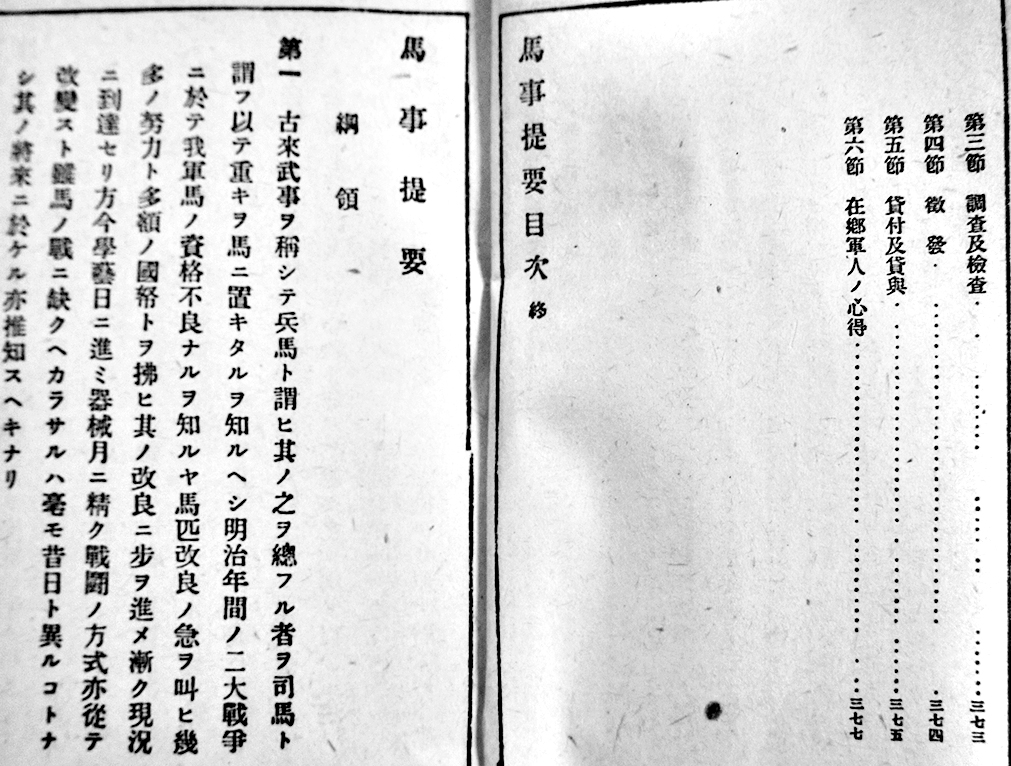 第三節　調査及檢査 三七三
第四節　徵發 三七四
第五節　貸付及貸與 三七五
第六節　在鄕軍人ノ心得 三七七
馬事提要目次終
馬事提要
綱領
第一　古來武事ヲ稱シテ兵馬ト謂ヒ其ノ之ヲ總フル者ヲ司馬ト
謂フ以テ重キヲ馬ニ置キタルヲ知ルヘシ明治年間ノ二大戰爭
ニ於テ我軍馬ノ資格不良ナルヲ知ルヤ馬匹改良ノ急ヲ叫ヒ幾
多ノ努力ト多額ノ國帑トヲ拂ヒ其ノ改良ニ步ヲ進メ漸ク現況
ニ到達セリ方今學藝日ニ進ミ器械月ニ精ク戰鬪ノ方式亦從テ
改變スト雖馬ノ戰ニ缺クヘカラサルハ毫モ昔日ト異ルコトナ
シ其ノ將來ニ於ケル亦推知スヘキナリ